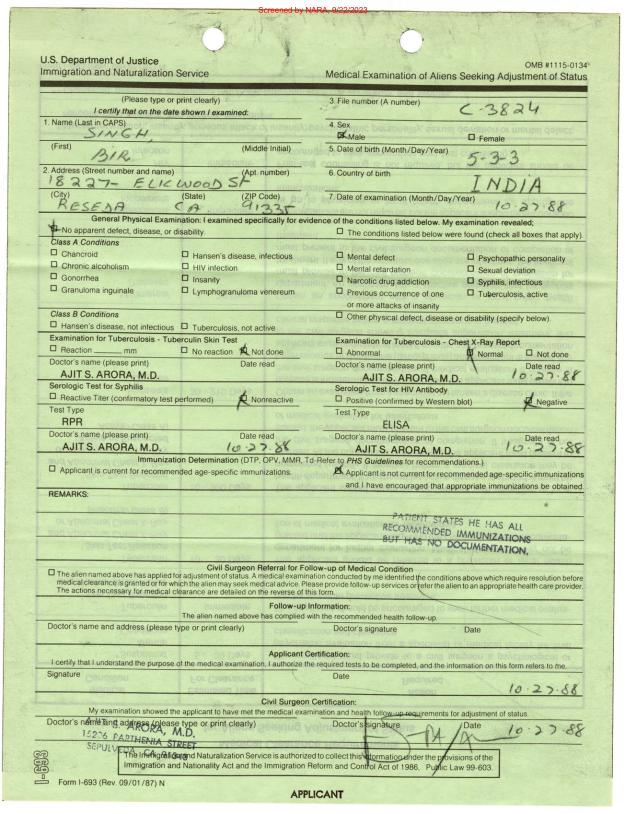 Screened by NARA, 9/22/2023
U.S. Department of Justice
Immigration and Naturalization Service
OMB #1115-0134
Medical Examination of Aliens Seeking Adjustment of Status
(Please type or print clearly)
I certify that on the date shown I examined:
3. File number (A number)
C-3824
1. Name (Last in CAPS)
SINGH,
4. Sex
Male
Female
(First) (Middle Initial)
BIR
5. Date of birth (Month/Day/Year)
5-3-3
2. Address (Street number and name) (Apt. number)
18227- ELICWOOD St
6. Country of birth
INDIA
(City) (State) (ZIP Code)
RESEDA CA 91335
7. Date of examination (Month/Day/Year)
10-27-88
General Physical Examination: I examined specifically for evidence of the conditions listed below. My examination revealed;
No apparent defect, disease, or disability.
The conditions listed below were found (check all boxes that apply).
Class A Conditions
Chancroid Hansen's disease, infectious Mental defect Psychopathic personality
Chronic alcoholism HIV infection Mental retardation Sexual deviation
Gonorrhea Insanity Narcotic drug addiction Syphilis, infectious
Granuloma inguinale Lymphogranuloma venereum Previous occurrence of one Tuberculosis, active
or more attacks of insanity
Class B Conditions
Other physical defect, disease or disability (specify below).
Hansen's disease, not infectious Tuberculosis, not active
Examination for Tuberculosis - Tuberculin Skin Test
Reaction ____ mm No reaction Not done
Doctor's name (please print) Date read
AJIT S. ARORA, M.D.
Examination for Tuberculosis - Chest X-Ray Report
Abnormal Normal Not done
Doctor's name (please print) Date read
AJIT S. ARORA, M.D. 10-27-88
Serologic Test for Syphilis
Reactive Titer (confirmatory test performed) Nonreactive
Test Type
RPR
Doctor's name (please print) Date read
AJIT S. ARORA, M.D. 10-27-88
Serologic Test for HIV Antibody
Positive (confirmed by Western blot) Negative
Test Type
ELISA
Doctor's name (please print) Date read
AJIT S. ARORA, M.D. 10-27-88
Immunization Determination (DTP, OPV, MMR, Td-Refer to PHS Guidelines for recommendations.)
Applicant is current for recommended age-specific immunizations.
Applicant is not current for recommended age-specific immunizations
and I have encouraged that appropriate immunizations be obtained.
REMARKS:
PATIENT STATES HE HAS ALL
RECOMMENDED IMMUNIZATIONS
BUT HAS NO DOCUMENTATION.
Civil Surgeon Referral for Follow-up of Medical Condition
The alien named above has applied for adjustment of status. A medical examination conducted by me identified the conditions above which require resolution before
medical clearance is granted or for which the alien may seek medical advice. Please provide follow-up services or refer the alien to an appropriate health care provider.
The actions necessary for medical clearance are detailed on the reverse of this form.
Follow-up Information:
The alien named above has complied with the recommended health follow-up.
Doctor's name and address (please type or print clearly) Doctor's signature Date
Applicant Certification:
I certify that I understand the purpose of the medical examination, I authorize the required tests to be completed, and the information on this form refers to me.
Signature Date
10-27-88
Civil Surgeon Certification:
My examination showed the applicant to have met the medical examination and health follow-up requirements for adjustment of status.
Doctor's name and address (please type or print clearly) Doctor's signature Date
AJIT S. ARORA, M.D. 10-27-88
PARTHENIA STREET
SEPULVEDA, CA 91343
The Immigration and Naturalization Service is authorized to collect this information under the provisions of the
Immigration and Nationality Act and the Immigration Reform and Control Act of 1986, Public Law 99-603.
Form I-693 (Rev. 09/01/87) N
APPLICANT